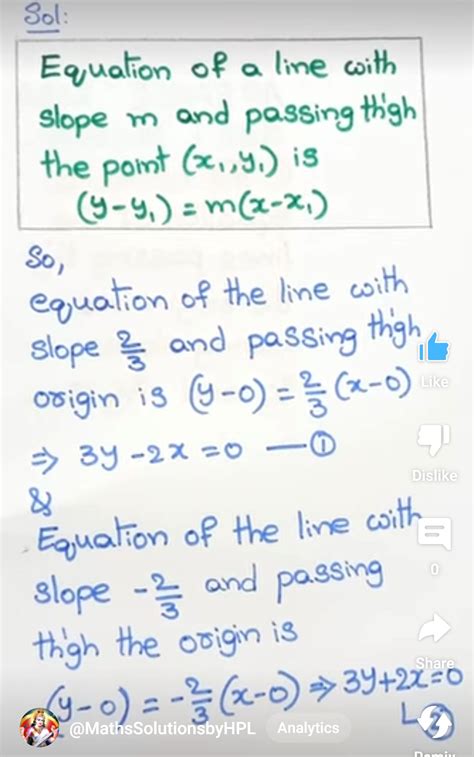 Sol:
Equation of a line with
slope m and passing th'gh
the point (x₁,y₁) is
(y-y₁) = m(x-x₁)
So,
equation of the line with
slope 2/3 and passing th'gh
origin is (y-0) = 2/3 (x-0)
⇒ 3y-2x=0 — ①
&
Equation of the line with
slope -2/3 and passing
th'gh the origin is
(y-0) = -2/3 (x-0) ⇒ 3y+2x=0
Like
Dislike
0
Share
@MathsSolutionsbyHPL
Analytics